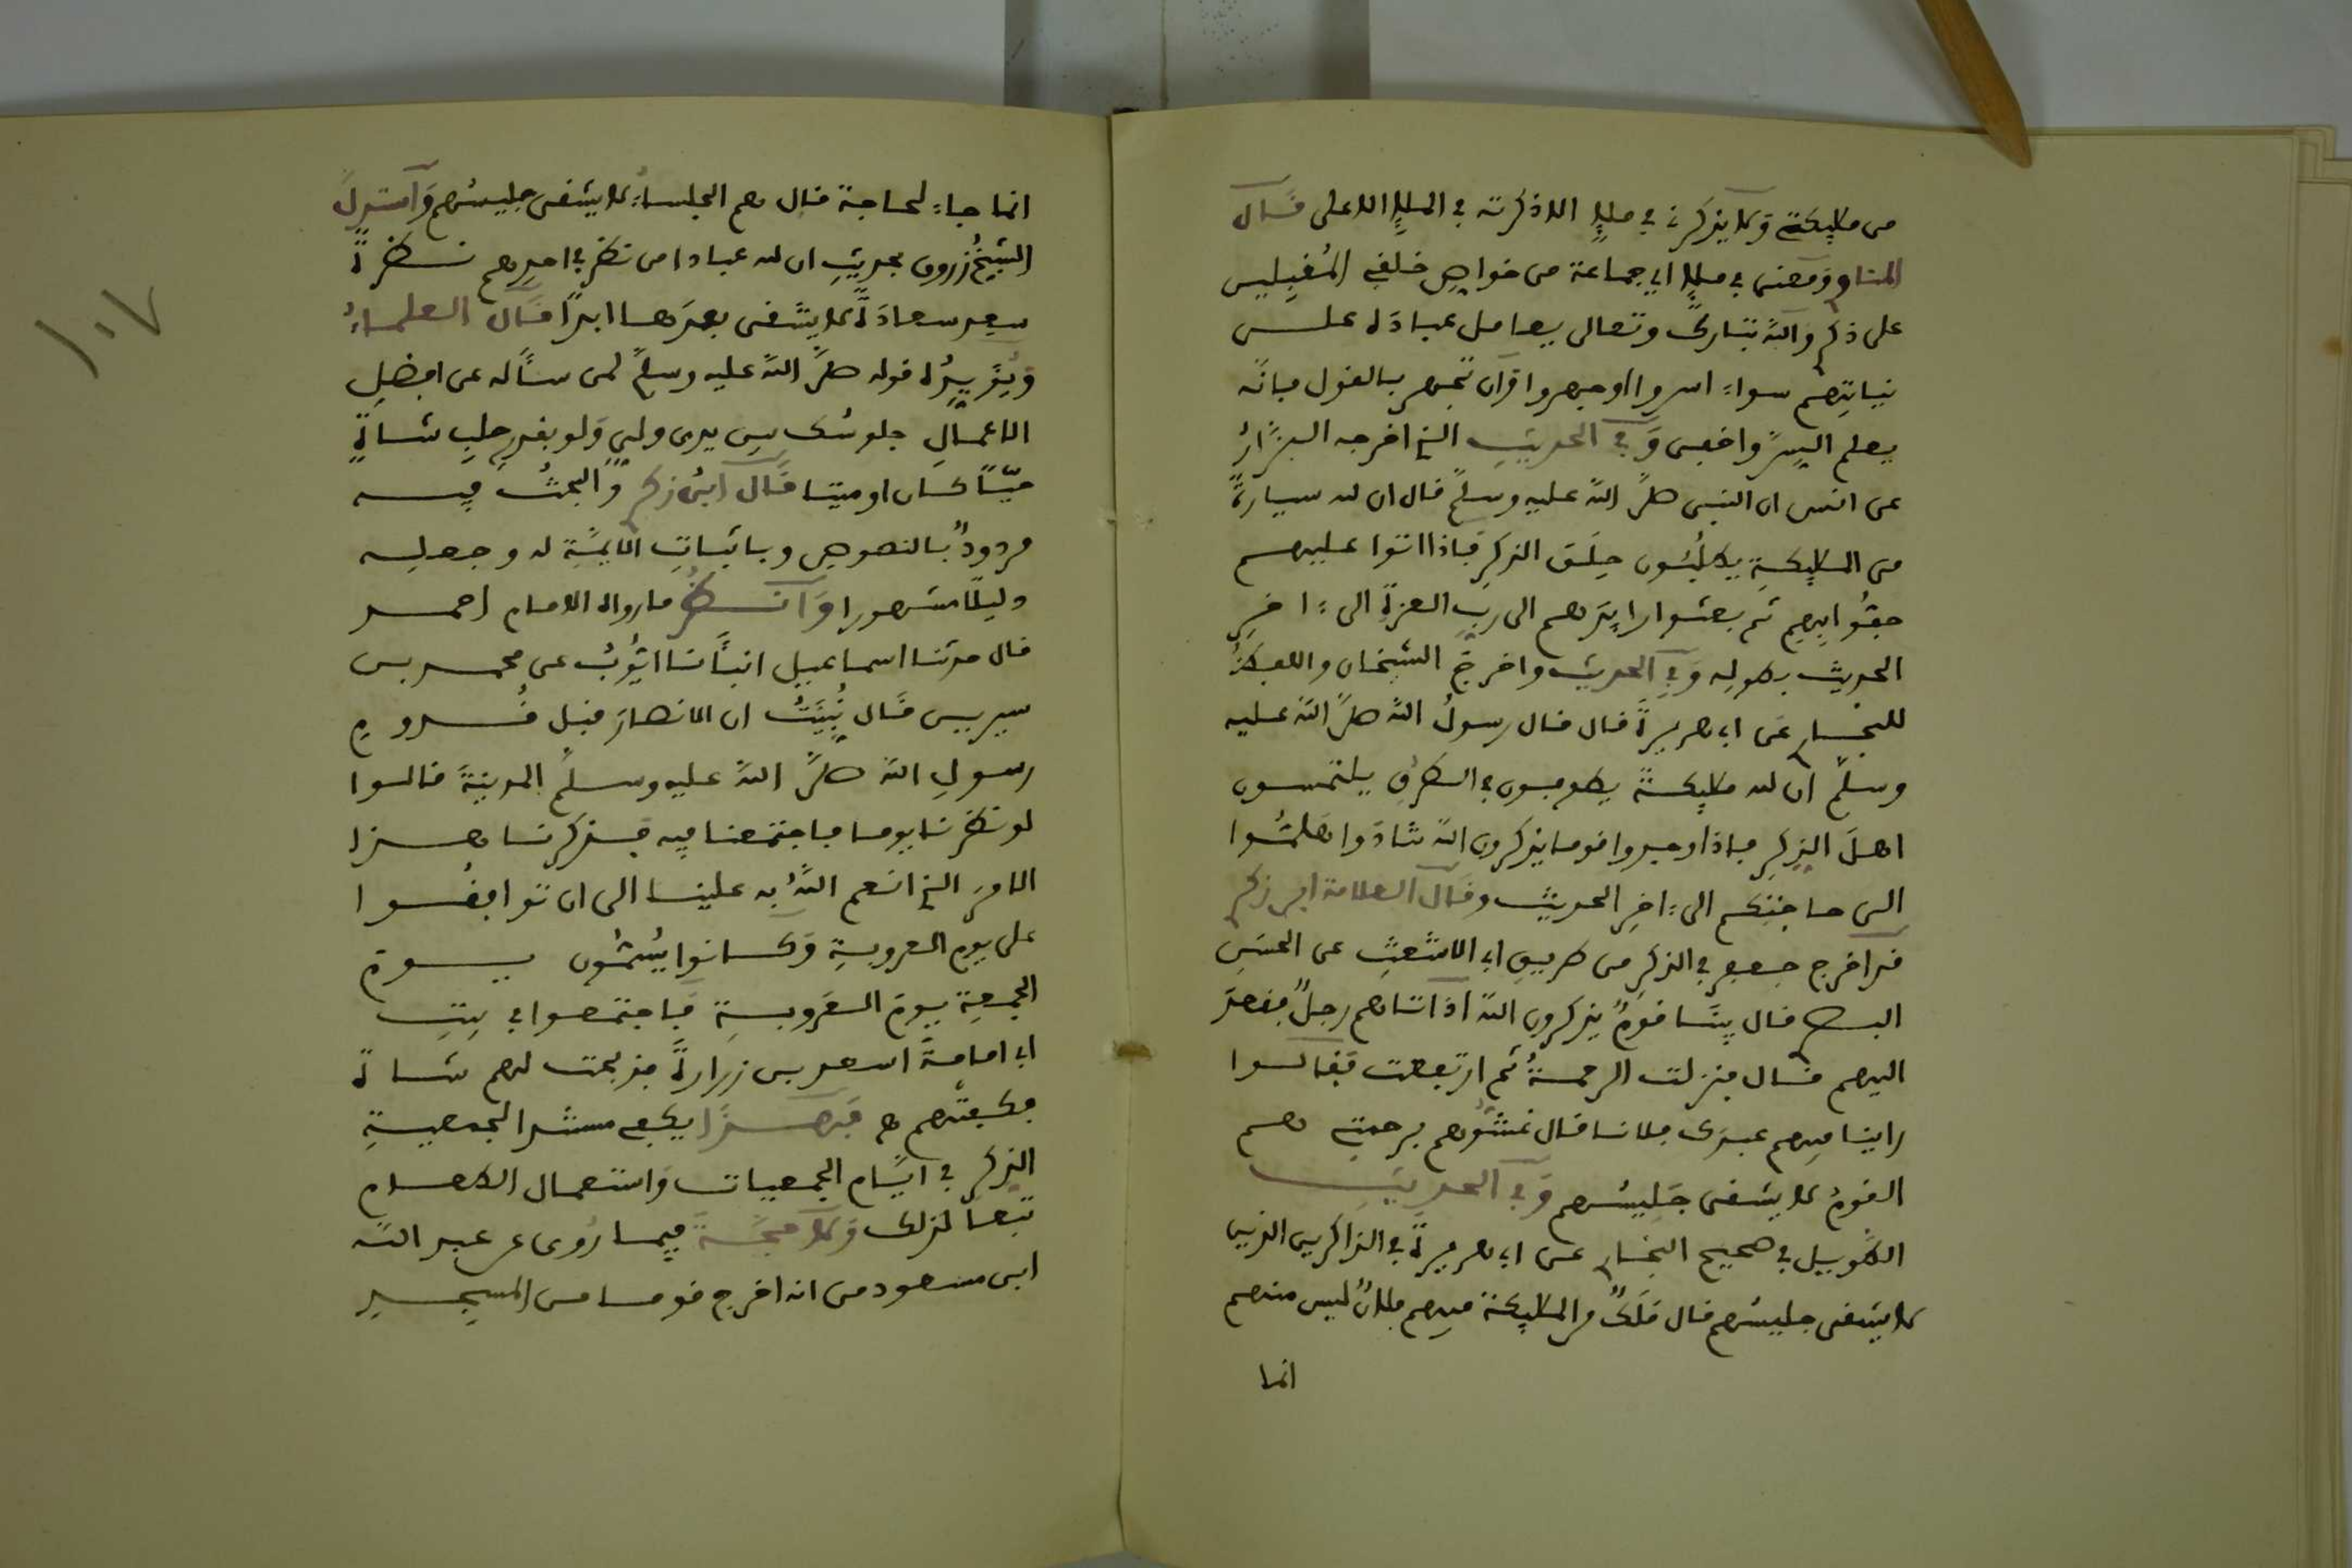 من ملايكة ولا يذكرني في ملإ الا ذكرته في الملإ الاعلى قال
المناوي ومعنى في ملإ اي جماعة من خواص خلقي المقبلين
على ذكري والله تبارك وتعالى يعامل عباده على
نياتهم سواء اسروا او جهروا وان تجهر بالقول فانه
يعلم السر واخفى وفي الحديث الذي اخرجه البزار
عن انس ان النبي صلى الله عليه وسلم قال ان لله سيارة
من الملايكة يطلبون حلق الذكر فاذا اتوا عليهم
حفوا بهم ثم بعثوا رايدهم الى رب العزة الى ءاخر
الحديث بطوله وفي الحديث واخرج الشيخان واللفظ
للبخاري عن ابي هريرة قال قال رسول الله صلى الله عليه
وسلم ان لله ملايكة يطوفون في الطرق يلتمسون
اهل الذكر فاذا وجدوا قوما يذكرون الله تنادوا هلموا
الى حاجتكم الى ءاخر الحديث وقال العلامة ابن زكري
قد اخرج جعفر في الذكر من طريق ابي الاشعث عن الحسن
البصري قال بينا قوم يذكرون الله اذ اتاهم رجل فقعد
اليهم قال فنزلت الرحمة ثم ارتفعت فقالوا
راينا فيهم عبدك فلانا قال غشوهم برحمتي هم
القوم لا يشقى جليسهم وفي الحديث
الطويل في صحيح البخاري عن ابي هريرة في الذاكرين الذين
لا يشقى جليسهم قال ملك من الملايكة فيهم فلان ليس منهم
انما
انما جاء لحاجة قال هم الجلساء لا يشقى جليسهم واستدل
الشيخ زروق بحديث ان لله عبادا من نظر في احدهم نظرة
سعد سعادة لا يشقى بعدها ابدا قال العلماء
ويؤيده قوله صلى الله عليه وسلم لمن سأله عن افضل
الاعمال جلوسك بين يدي ولي ولو بقدر حلب شاة
حيا كان او ميتا قال ابن زكري والبحث فيه
مردود بالنصوص وباثبات الايمة له وجعله
دليلا مشهورا وانظر ما رواه الامام احمد
قال حدثنا اسماعيل انبأنا ايوب عن محمد بن
سيرين قال نبيت ان الانصار قبل قدوم
رسول الله صلى الله عليه وسلم المدينة قالوا
لو نظرنا يوما فاجتمعنا فيه فذكرنا هذا
الامر الذي انعم الله به علينا الى ان توافقوا
على يوم العروبة وكانوا يسمون يوم
الجمعة يوم العروبة فاجتمعوا في بيت
ابي امامة اسعد بن زرارة فذبحت لهم شاة
فكفتهم ه فهذا يكفي مستندا لجمعية
الذكر في ايام الجمعيات واستعمال الطعام
تبعا لذلك ولا حجة فيما روى عن عبد الله
ابن مسعود من انه اخرج قوما من المسجد
١٠٧